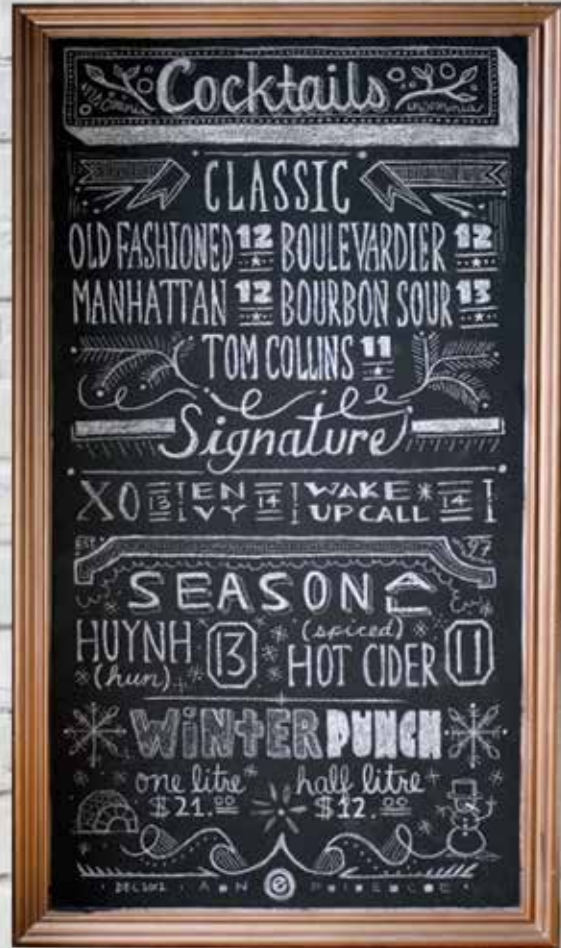 Cocktails
CLASSIC
OLD FASHIONED 12 BOULEVARDIER 12
MANHATTAN 12 BOURBON SOUR 13
TOM COLLINS 11
Signature
XO 13 ENVY 14 WAKE UP CALL 14
EST. 97
SEASONAL
HUYNH (hun) 13 (spiced) HOT CIDER 11
WINTER PUNCH
one litre half litre
$21.00 $12.00
DEC 2012